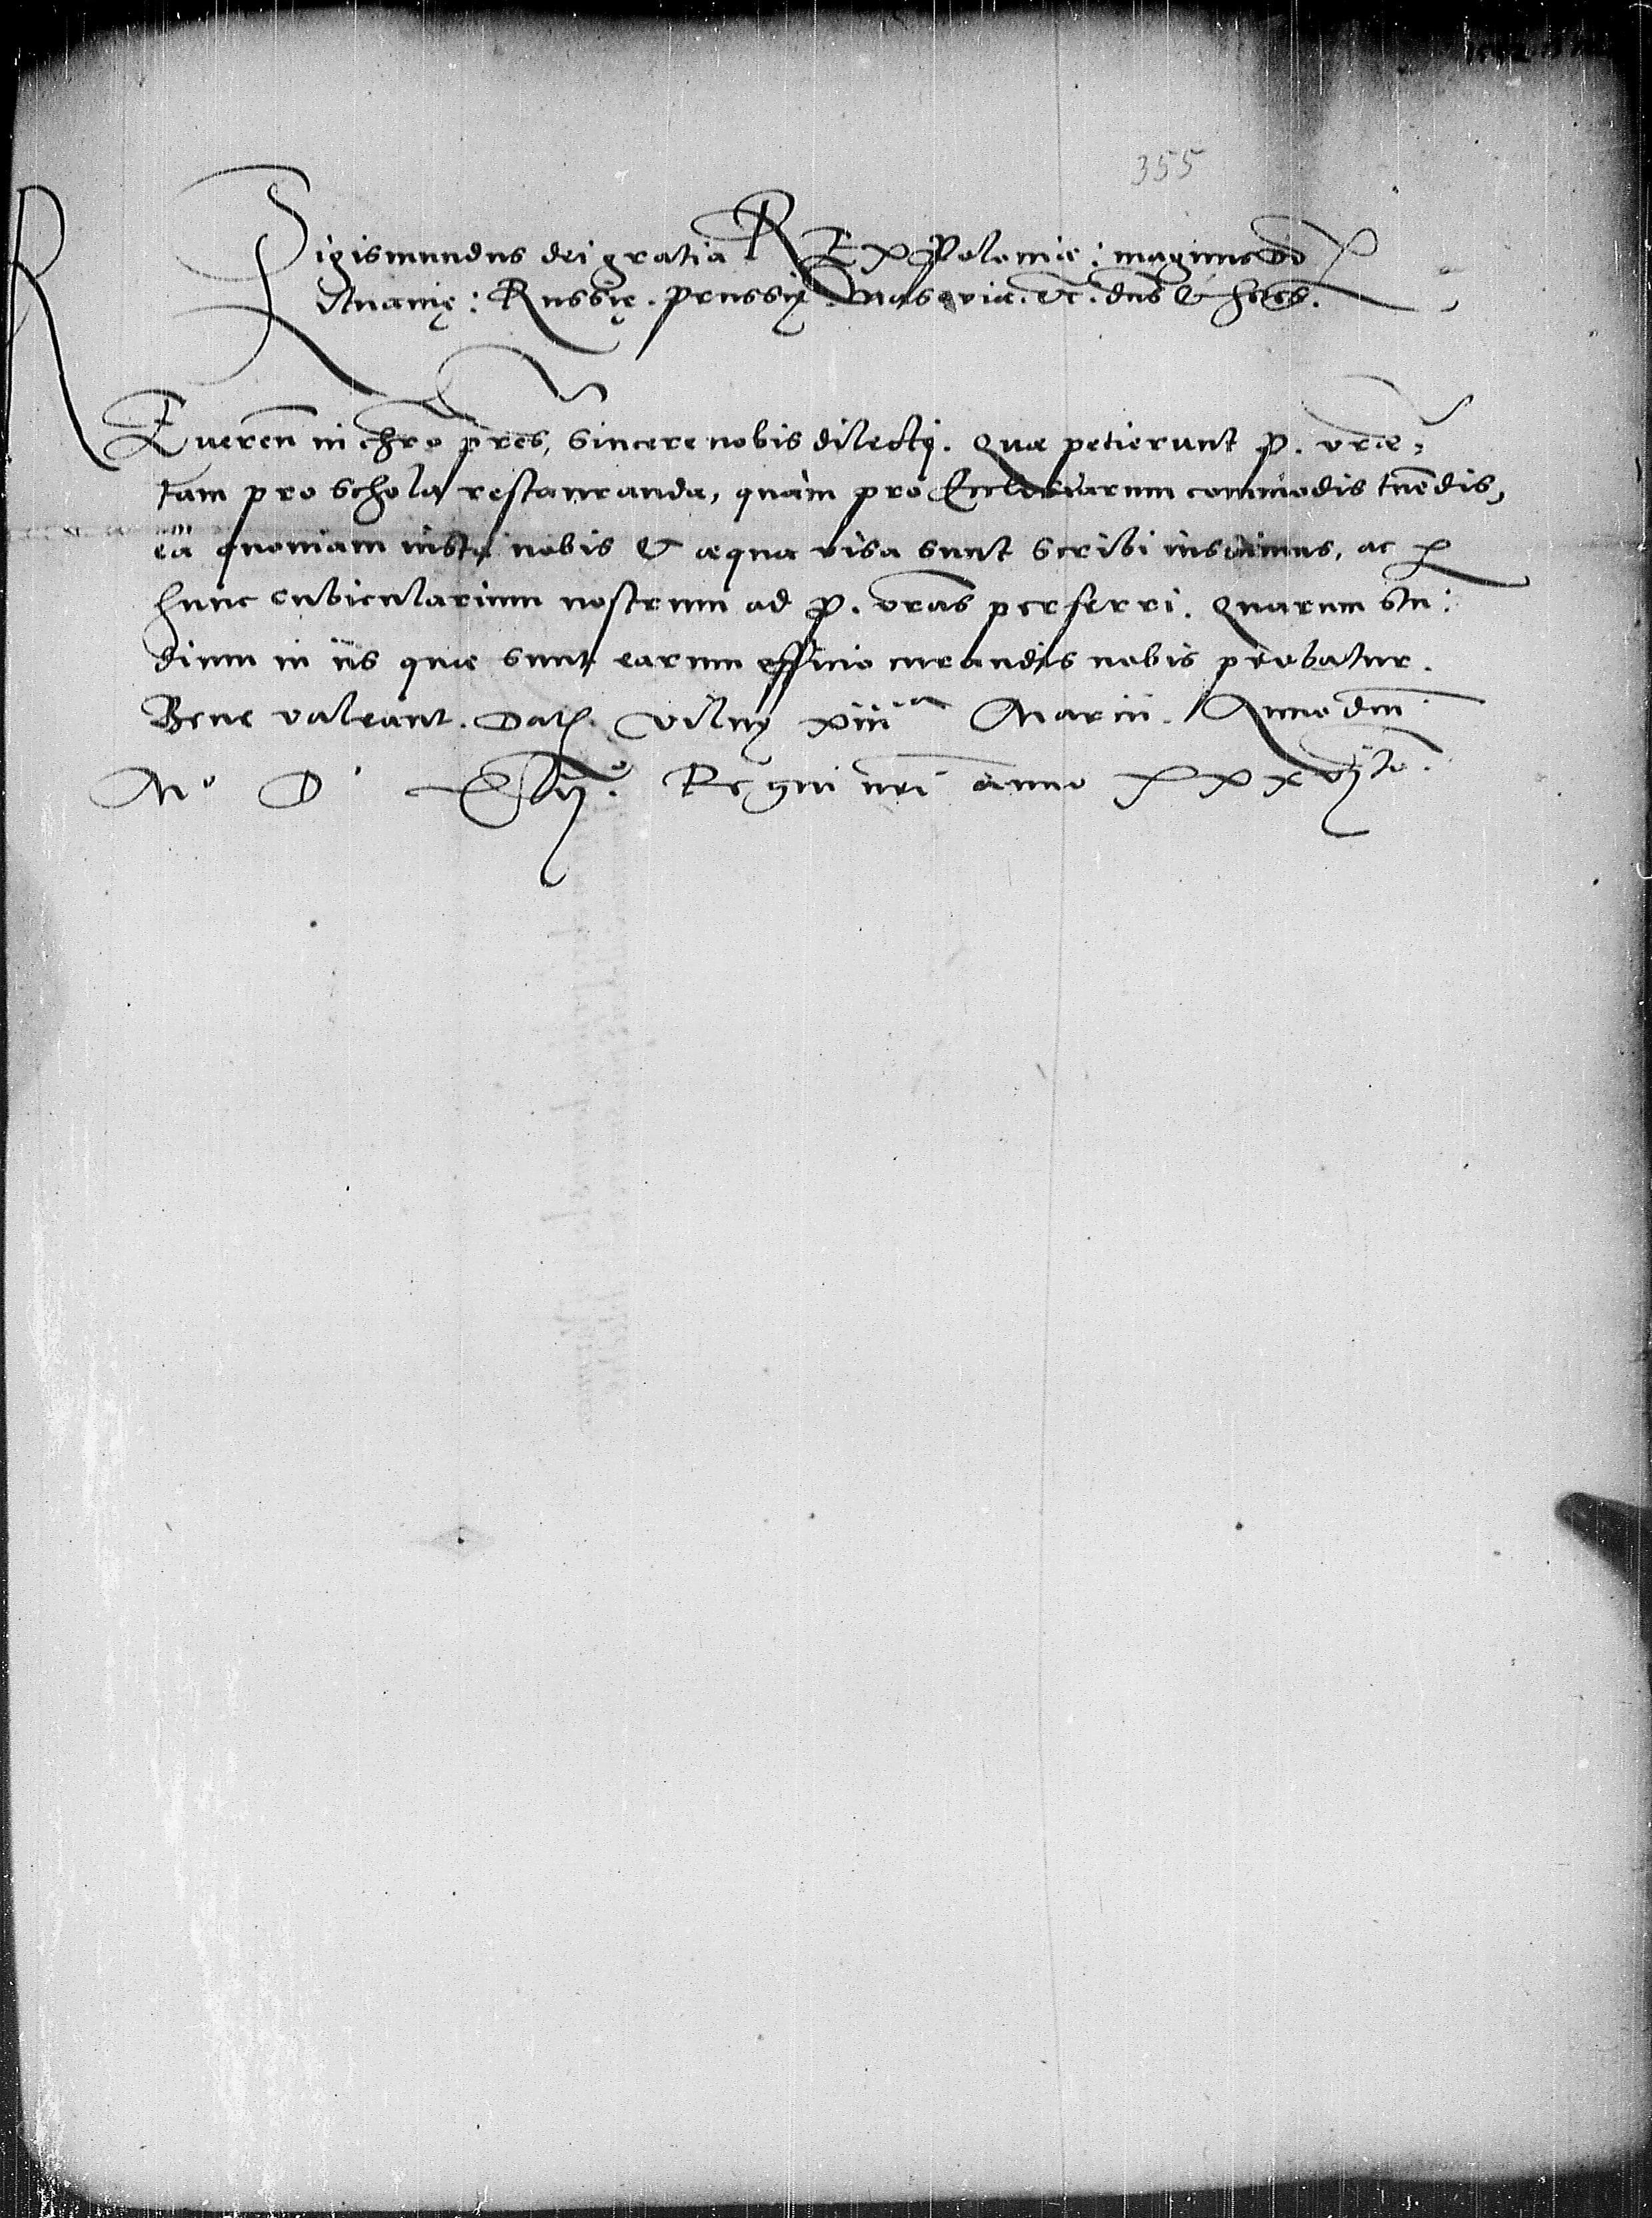 355
Sigismundus dei gratia REX Polonie: magnus dux
Lituanię: Russię. Prussię. Masovie. &c. dns & heres.
Reueren in chro pres, sincere nobis dilecti. Quæ petierunt p. vræ,
tam pro schola restauranda, quàm pro Ecclesiarum commodis tuēdis,
ea quoniam iusta nobis & æqua visa sunt scribi iussimus, ac per
hunc cubicularium nostrum ad p. vras perferri. Quarum stu:
dium in iis quæ sunt earum officio curandis nobis probatur.
Bene valeant. Dat. Vilnę xiiii Marcii. Anno dni
Mº D xlijº. Regni nri anno xxxvjto.